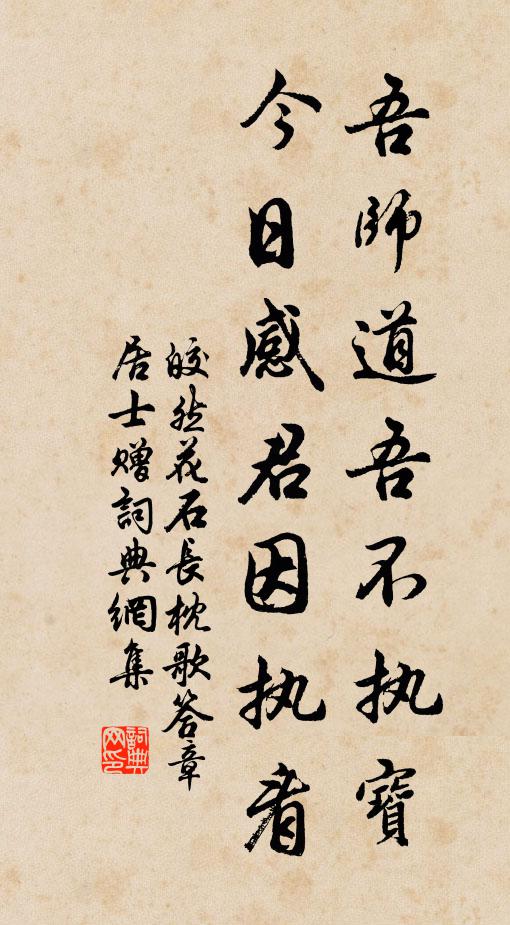 吾師道吾不执寶
今日感君因执看
皎然花石長枕歌答章
居士赠詞典網集
詞典网印